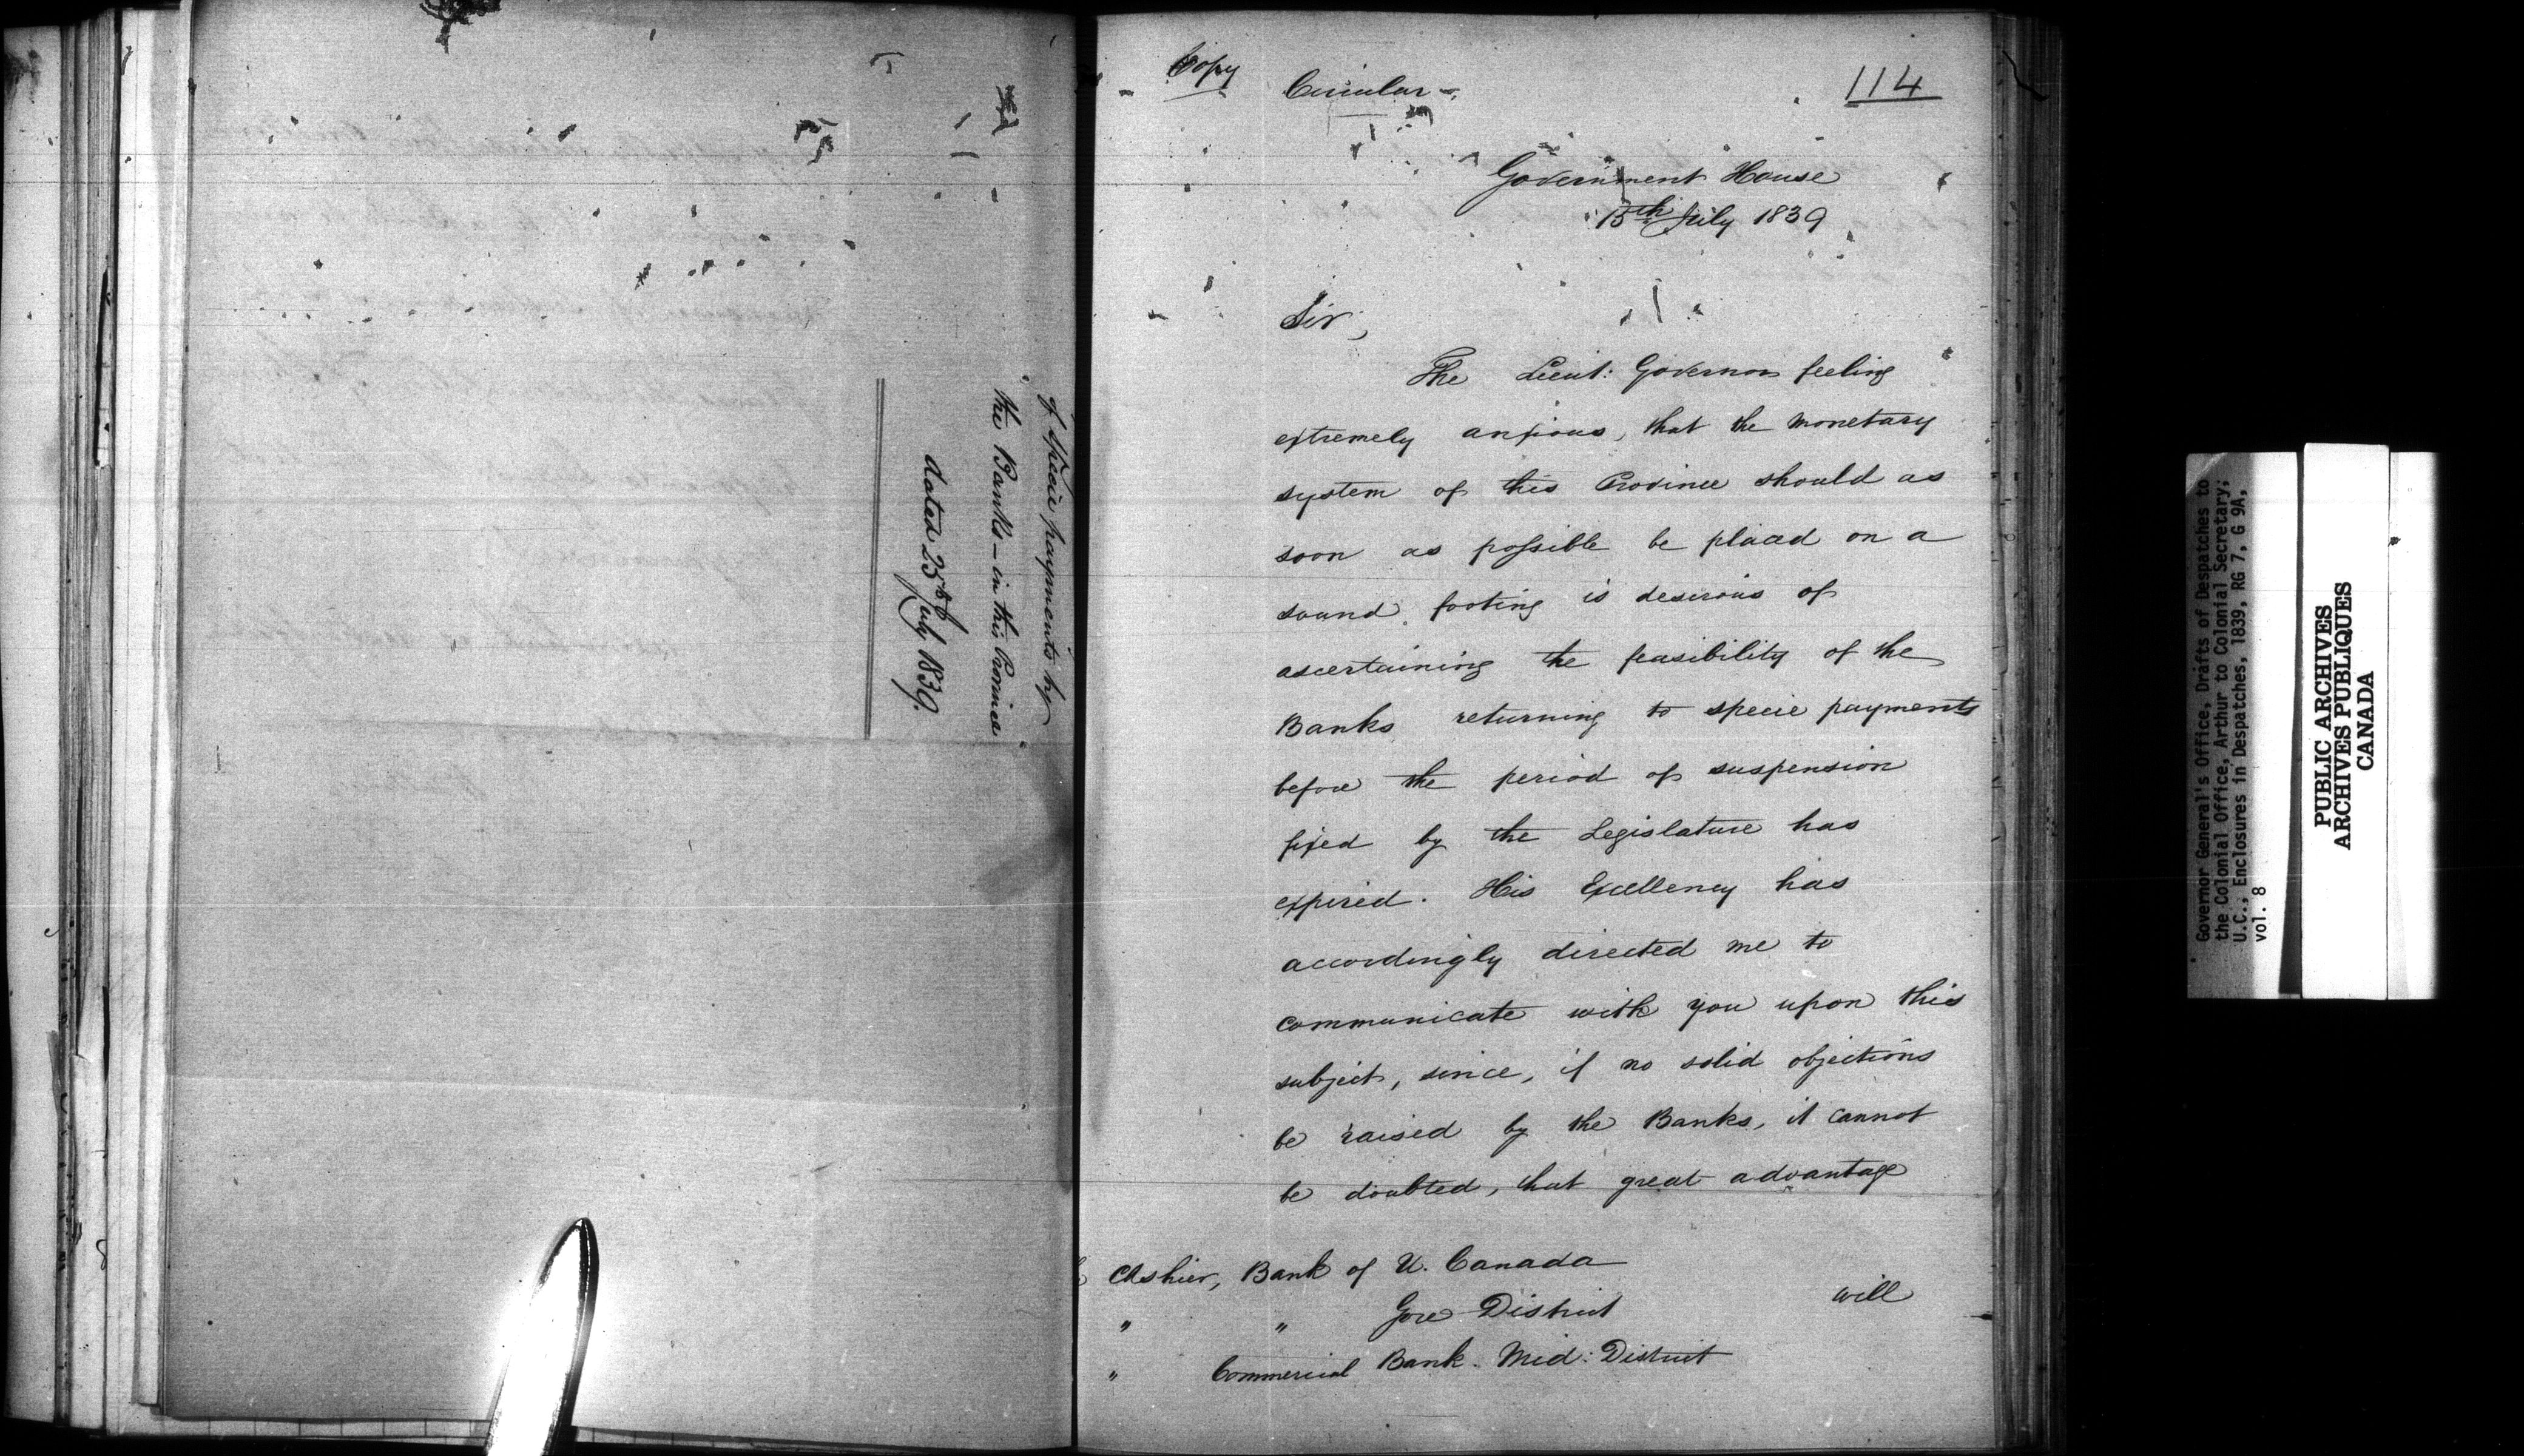 of Specie payments by
the Banks – in this Province
dated 25th July 1839.
Copy
Circular –
114
Government House
15th July 1839
Sir,
The Lieut: Governor feeling
extremely anxious, that the monetary
system of this Province should as
soon as possible be placed on a
sound footing is desirous of
ascertaining the feasibility of the
Banks returning to specie payments
before the period of suspension
fixed by the Legislature has
expired. His Excellency has
accordingly directed me to
communicate with you upon this
subject, since, if no solid objections
be raised by the Banks, it cannot
be doubted, that great advantage
will
Cashier, Bank of U. Canada
" " Gore District
" Commercial Bank. Mid: District
Governor General's Office, Drafts of Despatches to
the Colonial Office, Arthur to Colonial Secretary;
U.C., Enclosures in Despatches, 1839, RG 7, G 9A,
vol. 8
PUBLIC ARCHIVES
ARCHIVES PUBLIQUES
CANADA